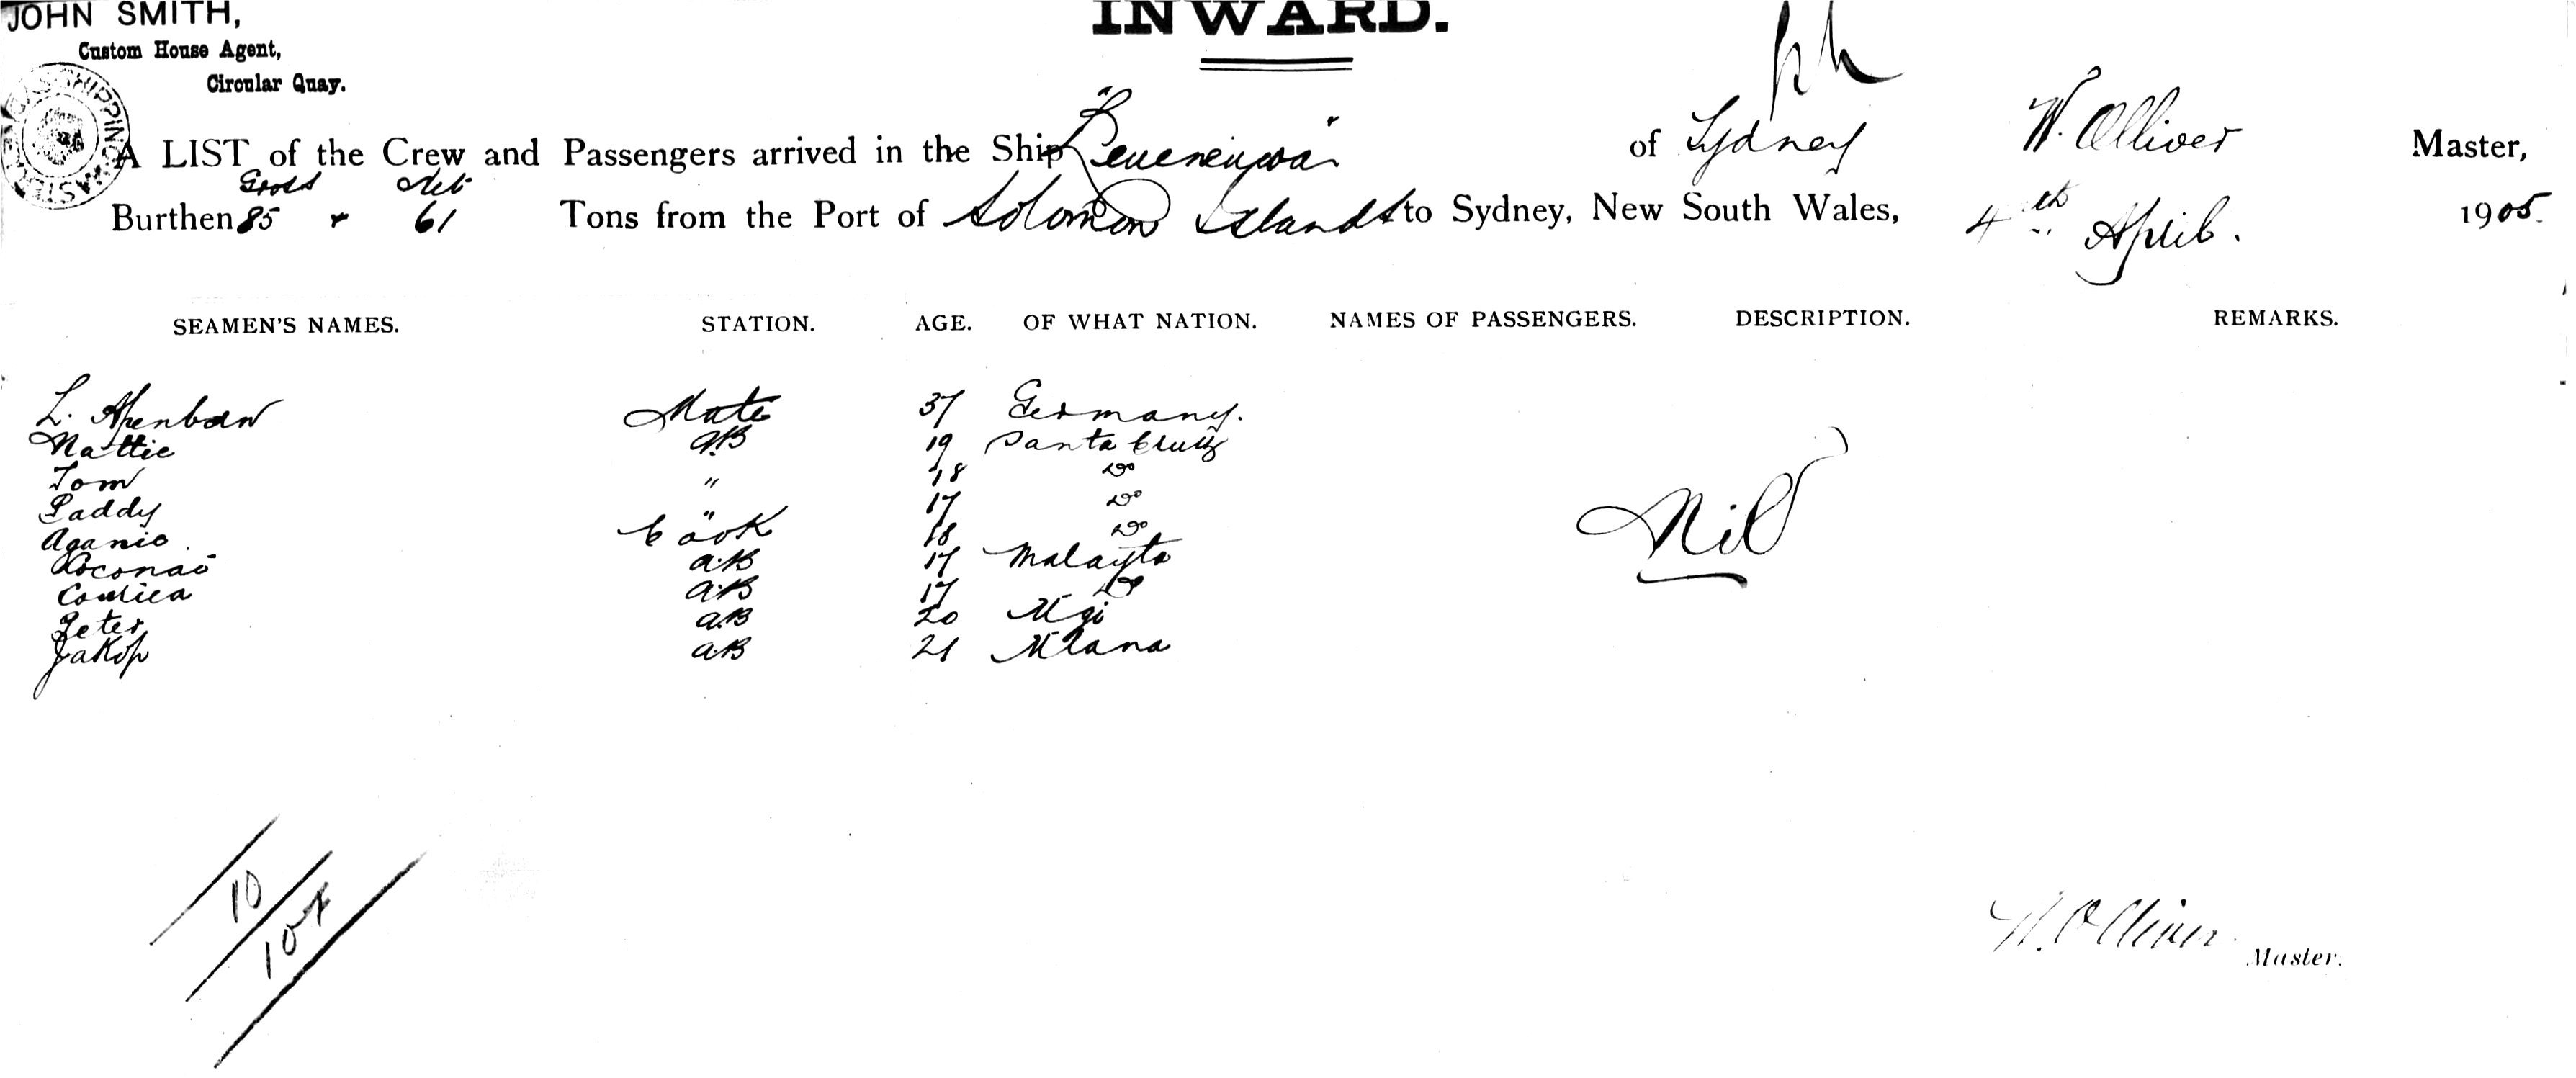 JOHN SMITH,
Custom House Agent,
Circular Quay.
INWARD.
A LIST of the Crew and Passengers arrived in the Ship of Sydney W. Olliver Master,
Gross Net
Burthen 85 & 61 Tons from the Port of Solomon Islands to Sydney, New South Wales, 4th April. 1905.
SEAMEN'S NAMES. STATION. AGE. OF WHAT NATION. NAMES OF PASSENGERS. DESCRIPTION. REMARKS.
L. Mate 37 Germany.
Nattie A.B 19 Santa Cruz
Tom " 18 Do
Paddy " 17 Do
Cook 18 Do
A.B 17 Malayta
A.B 17 Do
Peter A.B 20 Ugi
Jakop A.B 21
Nil
10
107
W. Olliver Master.